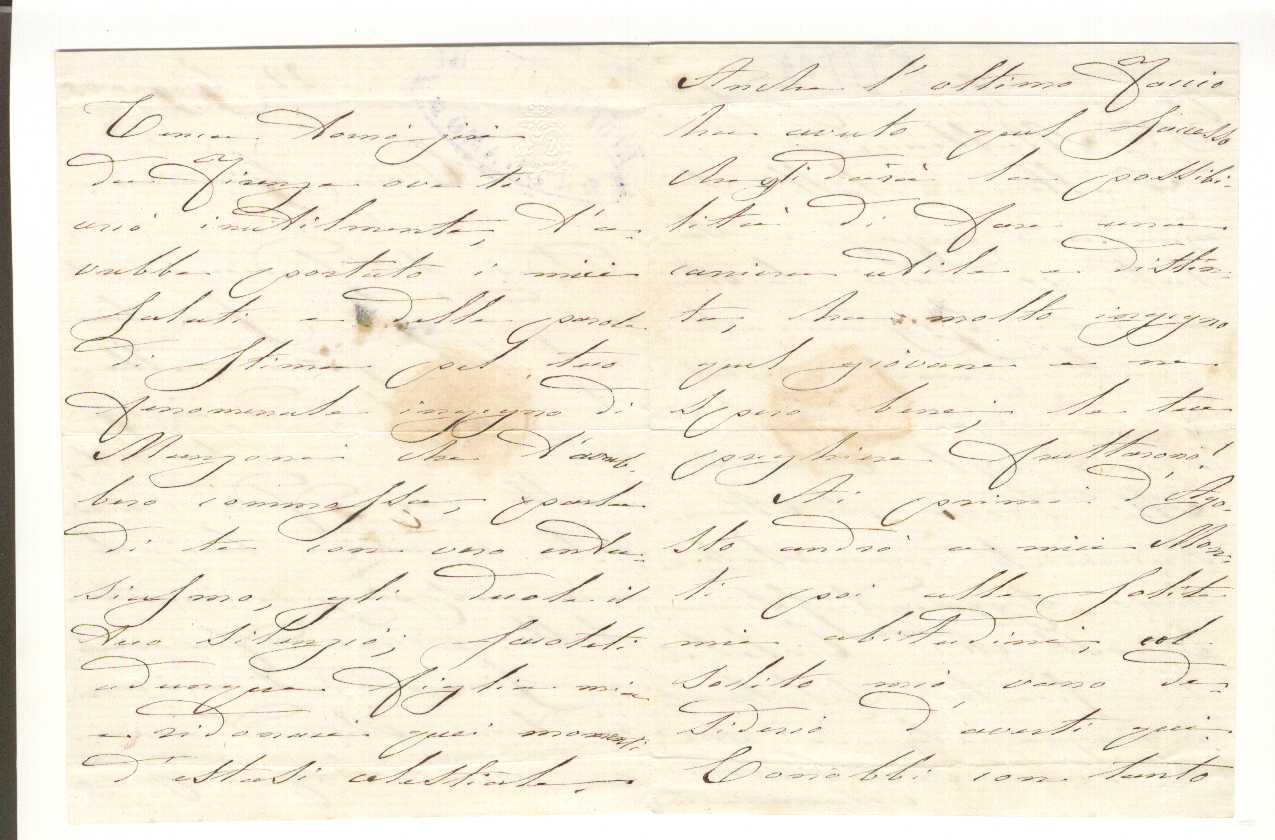 Tenca tornò jeri
da Firenze ove ti
cercò inutilmente, t'a-
vrebbe portato i miei
saluti e delle parole
di stima pel tuo
fenomenale ingegno di
Manzoni che t'avreb-
bero commossa, parla
di te con vero entu-
siasmo, gli duole il
tuo silenzio; scuotiti
adunque figlia mia
e ridonaci quei momenti
d'estasi celestiale.
Anche l'ultimo Faccio
ha avuto quel successo
che gli darà la possibi-
lità di fare una
carriera utile e distin-
ta, ha molto ingegno
quel giovane e ne
spero bene, le tue
preghiere fruttarono!
Ai primi d'Ago-
sto andrò a miei Mon-
ti poi alle solite
mie abitudini, col
solito mio vano de-
siderio d'averti qui.
Conobbi con tanto